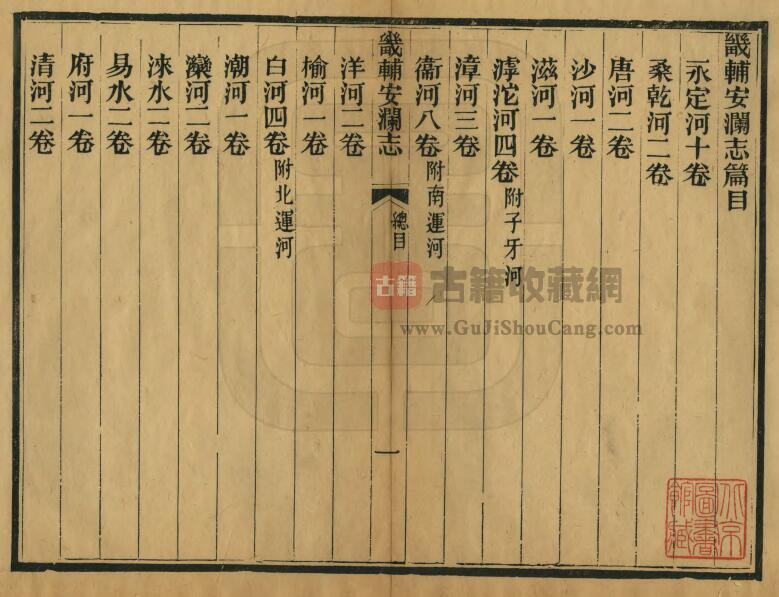 畿輔安瀾志篇目
永定河十卷
桑乾河二卷
唐河二卷
沙河一卷
滋河一卷
滹沱河四卷附子牙河
漳河三卷
衞河八卷附南運河
畿輔安瀾志
總目
一
洋河二卷
榆河一卷
白河四卷附北運河
潮河一卷
灤河二卷
淶水二卷
易水二卷
府河一卷
清河二卷
古籍
古籍收藏網
www.GuJiShouCang.com
北京
圖書
館藏